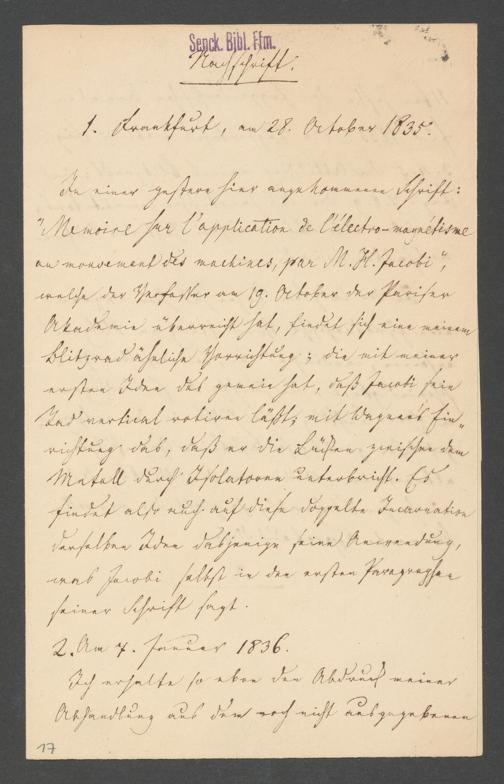 Senck. Bibl. Ffm.
Nachschrift.
1. Frankfurt, am 28. October 1835.
In einer gestern hier angekommenen Schrift:
"Memoire sur l'application de l'électro-magnétisme
au mouvement des machines, par M. H. Jacobi",
welche der Verfasser am 19. October der Pariser
Akademie überreicht hat, findet sich eine meinem
Blitzrad ähnliche Vorrichtung; die mit meiner
ersten Idee das gemein hat, daß Jacobi sein
Rad vertical rotiren läßt; mit Wagners Ein-
richtung das, daß er die Lücken zwischen dem
Metall durch Isolatoren unterbricht. Es
findet also auch auf diese doppelte Incarnation
derselben Idee dasjenige seine Anwendung,
was Jacobi selbst in den ersten Paragraphen
seiner Schrift sagt.
2. Am 7. Januar 1836.
Ich erhalte so eben den Abdruck meiner
Abhandlung aus dem noch nicht ausgegebenen
17